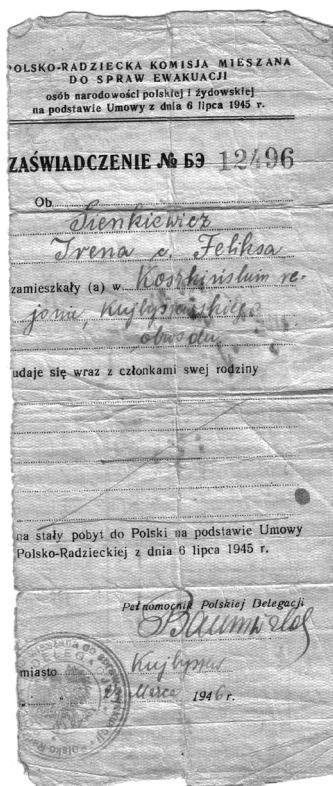 POLSKO-RADZIECKA KOMISJA MIESZANA
DO SPRAW EWAKUACJI
osób narodowości polskiej i żydowskiej
na podstawie Umowy z dnia 6 lipca 1945 r.
ZAŚWIADCZENIE № БЭ 12496
Ob.
Sienkiewicz
Irena c. Feliksa
zamieszkały (a) w Koszkińskim re-
jonie, Kujbyszewskiego
obwodu
udaje się wraz z członkami swej rodziny
na stały pobyt do Polski na podstawie Umowy
Polsko-Radzieckiej z dnia 6 lipca 1945 r.
Pełnomocnik Polskiej Delegacji
miasto Kujbyszew
Marca 1946 r.